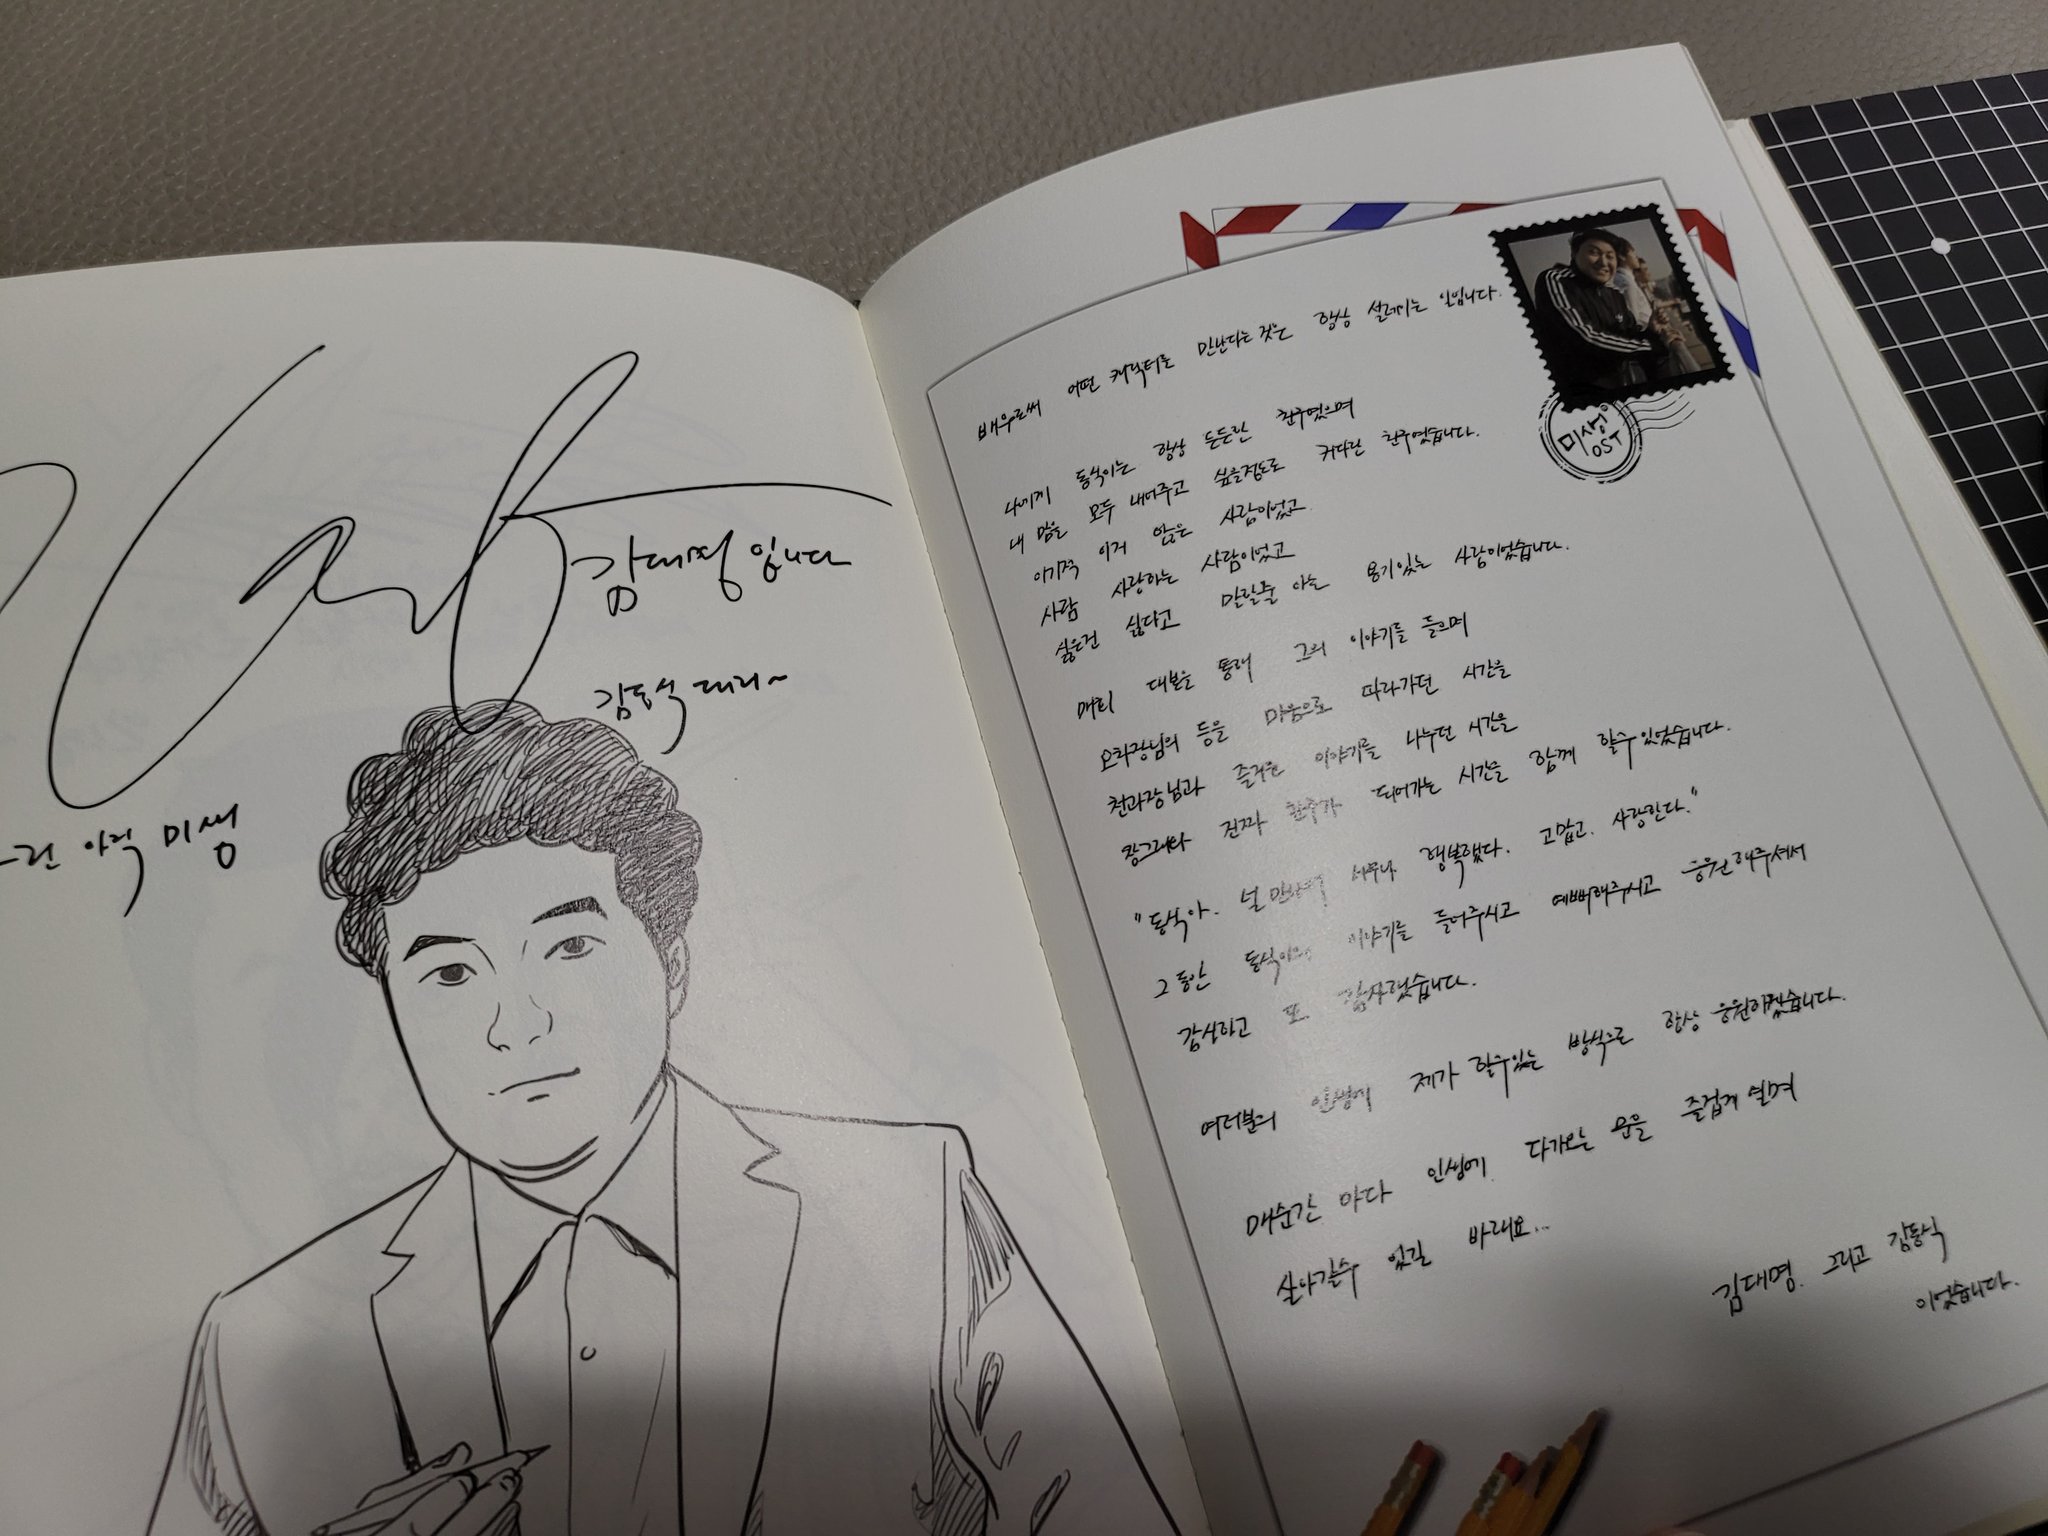 김대명입니다
김동식 대리~
린 아직 미생
배우로써 어떤 캐릭터를 만난다는 것은 항상 설레이는 일입니다.
미생 OST
나에게 동식이는 항상 든든한 친구였으며
내 맘을 모두 내어주고 싶을정도로 커다란 친구였습니다.
이기적 이지 않은 사람이었고
사람 사랑하는 사람이었고
싫은건 싫다고 말할줄 아는 용기있는 사람이었습니다.
매회 대본을 통해 그의 이야기를 들으며
오과장님의 등을 마음으로 따라가던 시간을
천과장님과 즐거운 이야기를 나누던 시간을
장그래와 진짜 친구가 되어가는 시간을 함께 할수 있었습니다.
"동식아. 널 만나서 너무나 행복했다. 고맙고. 사랑한다."
그동안 동식이의 이야기를 들어주시고 예뻐해주시고 응원해주셔서
감사하고 또 감사했습니다.
여러분의 인생에 제가 할수있는 방식으로 항상 응원하겠습니다.
매순간 마다 인생에 다가오는 문을 즐겁게 열며
살아갈수 있길 바래요...
김대명. 그리고 김동식
이었습니다.